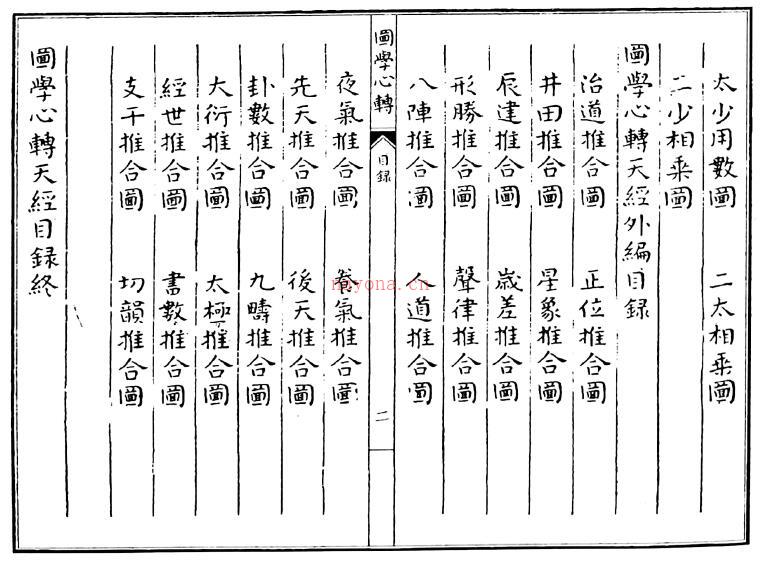 太少用數圖　二太相乘圖
二少相乘圖
圖學心轉天經外編目録
治道推合圖　正位推合圖
井田推合圖　星象推合圖
辰建推合圖　歲差推合圖
形勝推合圖　聲律推合圖
八陣推合圖　人道推合圖
圖學心轉　目録　二
夜氣推合圖　養氣推合圖
先天推合圖　後天推合圖
卦數推合圖　九疇推合圖
大衍推合圖　太極推合圖
經世推合圖　書數推合圖
支干推合圖　切韻推合圖
圖學心轉天經目録終
nayona.cn